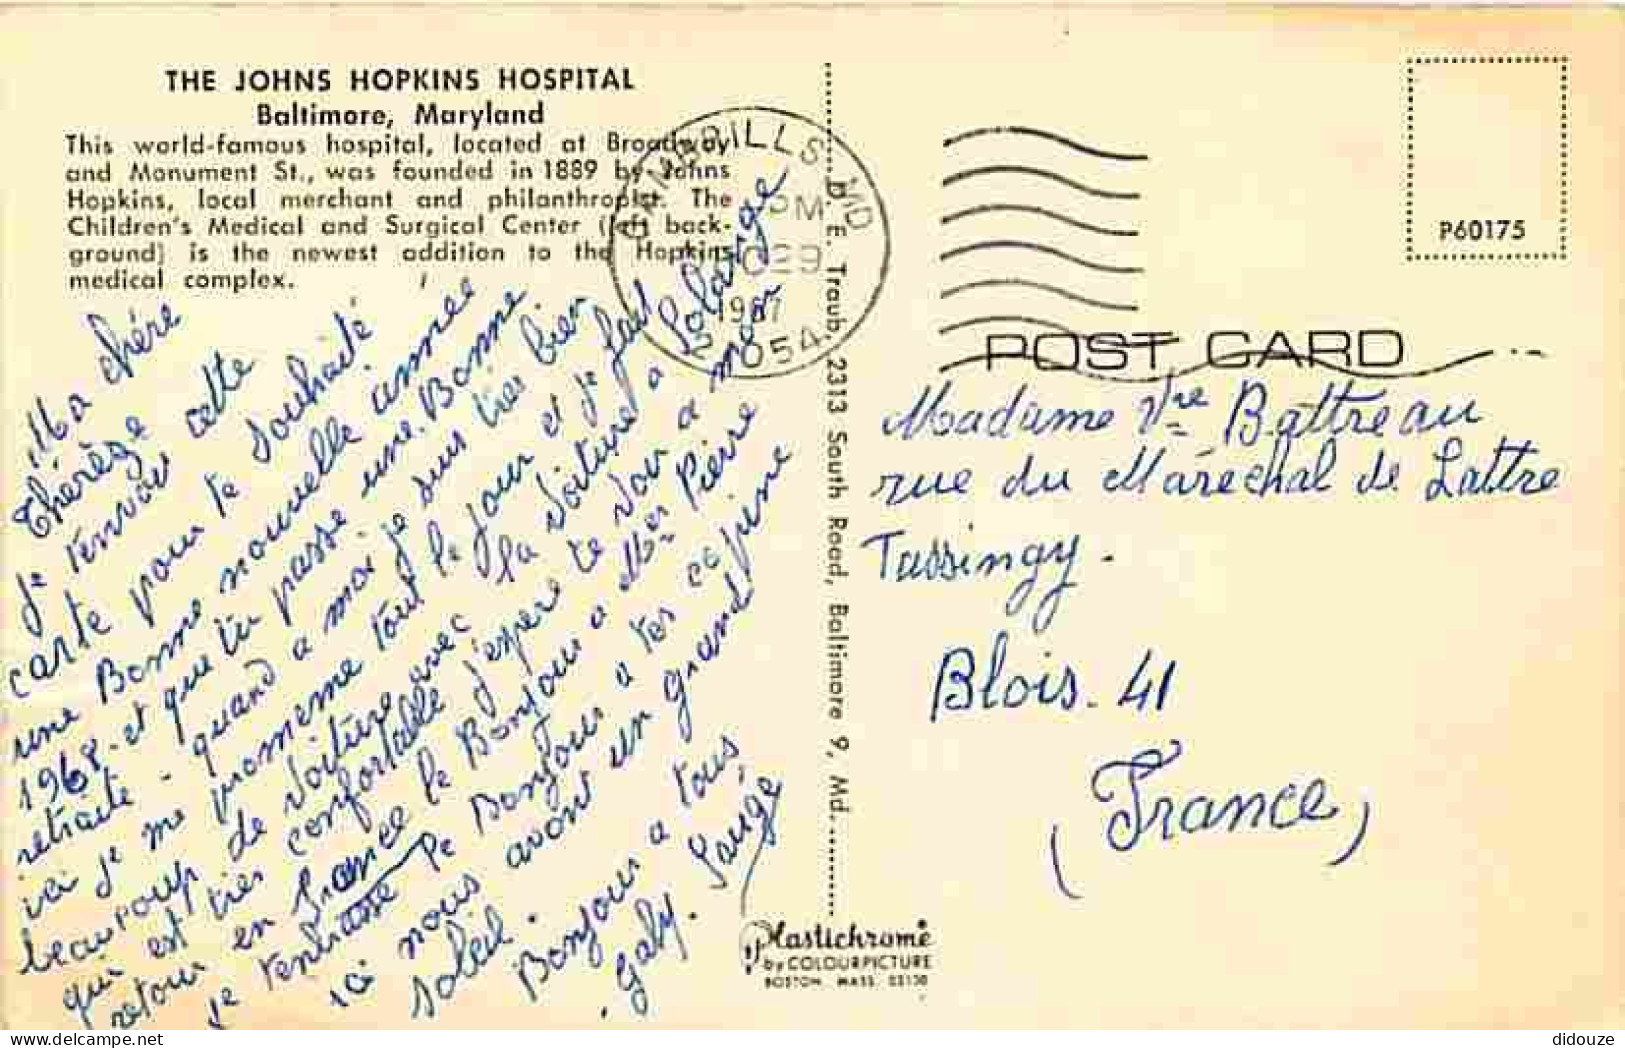 THE JOHNS HOPKINS HOSPITAL
Baltimore, Maryland
This world-famous hospital, located at Broadway
and Monument St., was founded in 1889 by Johns
Hopkins, local merchant and philanthropist. The
Children's Medical and Surgical Center (left back-
ground) is the newest addition to the Hopkins
medical complex.
Ma chére
Thérèze
Je t'envoi cette
carte pour te souhaité
une Bonne nouvelle année
1968. et que tu passe une Bonne
retraite - quand a moi je suis tres bien
ici je me promene tout le jour et je fait
beaucoup de voiture avec la voiture a Solange
qui est tres confortable d'espere te voir a mon
retour en France le Bonjour a Mr Pierre
Je t'embrasse le Bonjour a tes
ici nous avont un grand
soleil.
Bonjour a tous,
Gaby. Saugé
GAMBRILLS MD
PM
29
1967
21054
D. E. Traub, 2313 South Road, Baltimore 9, Md.
Plastichrome
by COLOURPICTURE
BOSTON, MASS. 02130
P60175
POST CARD
Madame Vve Battreau
rue du Maréchal de Lattre
Tassingy.
Blois. 41
(France)
didouze
delcampe.net